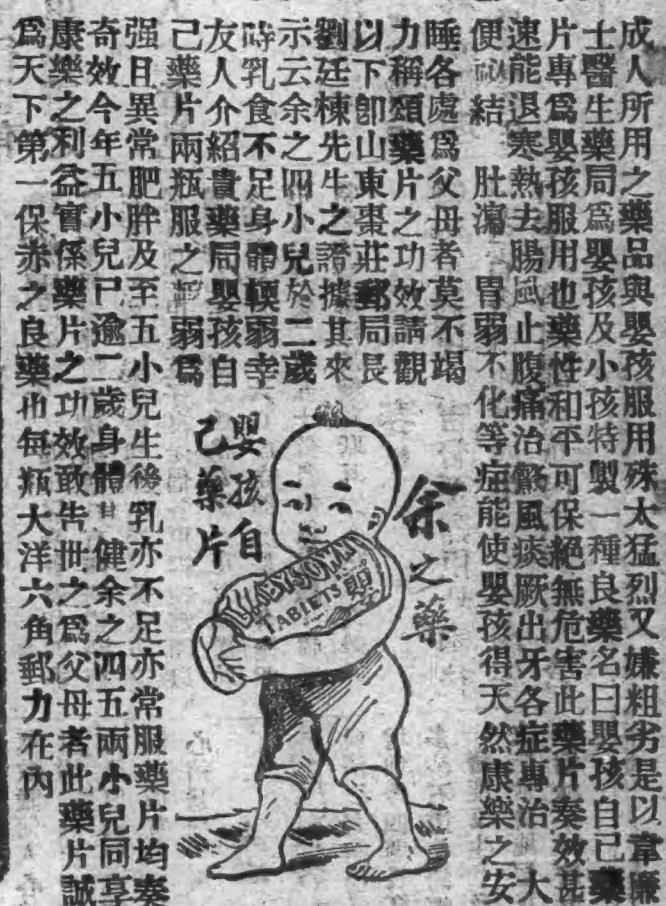 成人所用之藥品與嬰孩服用殊太猛烈又嫌粗劣是以韋廉
士醫生藥局爲嬰孩及小孩特製一種良藥名曰嬰孩自己藥
片專爲嬰孩服用也藥性和平可保絕無危害此藥片奏效甚
速能退寒熱去腸風止腹痛治驚風痰厥出牙各症專治 大
便祕結 肚瀉 胃弱不化等症能使嬰孩得天然康樂之安
睡各處爲父母者莫不竭
力稱頌藥片之功效請觀
以下卽山東棗莊郵局長
劉廷棟先生之證據其來
示云余之四小兒於二歲
時乳食不足身體輭弱幸
友人介紹貴藥局嬰孩自
己藥片兩瓶服之輭弱爲
强且異常肥胖及至五小兒生後乳亦不足亦常服藥片均奏
奇效今年五小兒已逾二歲身體甘健余之四五兩小兒同享
康樂之利益實係藥片之功效敢告世之爲父母者此藥片誠
爲天下第一保赤之良藥也每瓶大洋六角郵力在內
余之藥
嬰孩自
己藥片
TABLETS